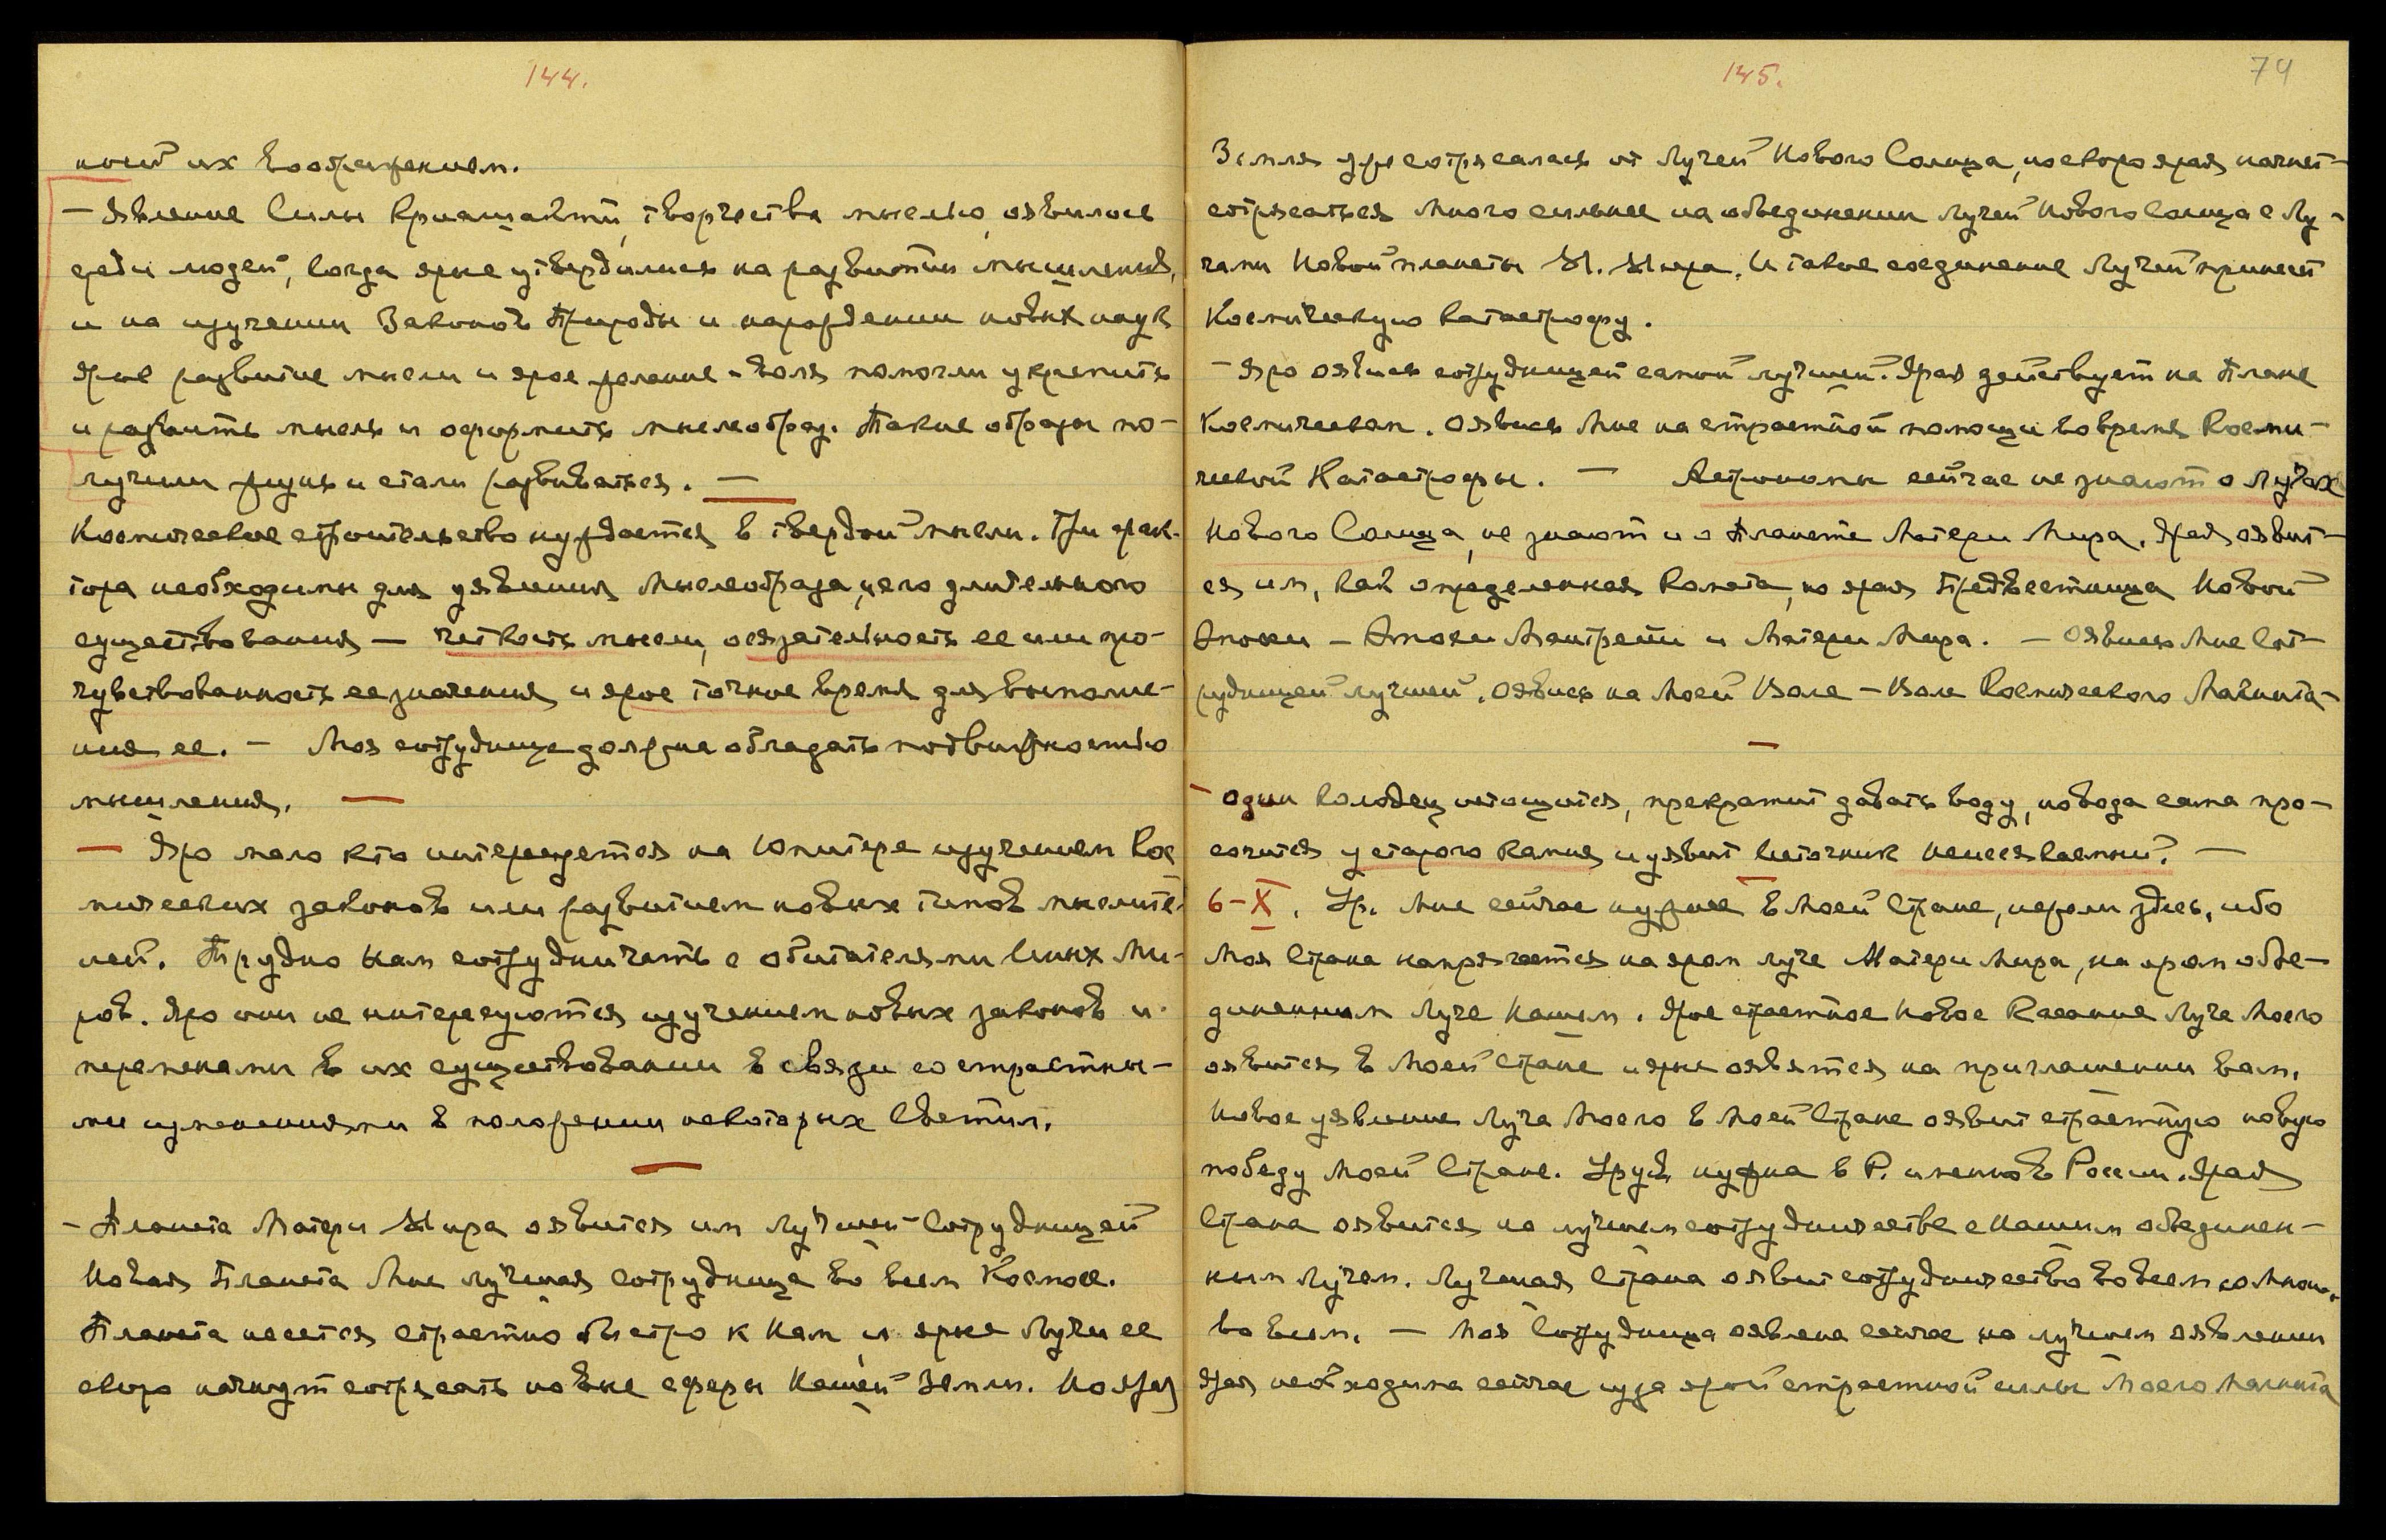 144.
ной их воображением.
— Явление Силы Крияшакти, творчества мыслью, оявилось
среди людей, когда ярые утвердились на развитии мышления,
и на изучении Законов Природы и нарождении новых наук
Ярое развитие мысли и ярое желание - воля помогли укрепить
и развить мысль и оформить мыслеобраз. Такие образы по-
лучили жизнь и стали развиваться. —
Космическое строительство нуждается в твердой мысли. Три фак-
тора необходимы для уявления Мыслеобраза, и его длительного
существования — четкость мысли, осязательность ее или про-
чувствованность ее значения и ярое точное время для выполне-
ния ее. — Моя сотрудница должна обладать подвижностью
мышления. —
— Яро мало кто интересуется на Юпитере изучением Кос
мических законов или развитием новых типов мыслите-
лей. Трудно Нам сотрудничать с обитателями Иных Ми-
ров. Яро они не интересуются изучением новых законов и
переменами в их существовании в связи со страстны-
ми изменениями в положении некоторых Светил.
— Планета Матери Мира оявится им Лучшей Сотрудницей
Новая Планета Мне лучшая сотрудница во всем Космосе.
Планета несется страстно быстро к Нам, и ярые Лучи ее
скоро начнут сотрясать новые сферы Нашей Земли. Но ярая
145.
79
Земля уже сотрясалась от Лучей Нового Солнца, но скоро ярая начнет
сотрясаться много сильнее на объединении Лучей Нового Солнца с Лу-
чами Новой планеты М. Мира. И такое соединение Лучей принесет
Космическую Катастрофу.
— Яро оявись сотрудницей самой лучшей. Ярая действует на Плане
Космическом. Оявись Мне на страстной помощи во время Косми-
ческой Катастрофы. — Астрономы сейчас не знают о Лучах
Нового Солнца, не знают и о Планете Матери Мира. Ярая оявит-
ся им, как определенная Комета, но ярая Предвестница Новой
Эпохи — Эпохи Майтрейи и Матери Мира. — Оявись Мне Сот-
рудницей лучшей. Оявись на Моей Воле — Воле Космического Магнита —
— Один колодец истощится, прекратит давать воду, но вода сама про-
сочится у старого камня и уявит Источник неиссякаемый. —
6-X. Ур. Мне сейчас нужнее в Моей Стране, нежели здесь, ибо
Моя Страна напрягается на яром луче Матери Мира, на яром объе-
диненным Луче Нашем. Ярое страстное Новое Касание Луча Моего
оявится в Моей Стране и ярые оявятся на приглашении вам.
Новое уявление Луча Моего в Моей Стране оявит страстную новую
победу Моей Стране. Уруя нужна в Р. именно в России. Ярая
Страна оявится на лучшем сотрудничестве с Нашим объединен-
ным Лучом. Лучшая Страна оявит сотрудничество во всем со Мною,
во всем. — Моя Сотрудница оявлена сейчас на лучшем оявлении
Ярая необходима сейчас из-за ярой страстной силы Моего Магнита